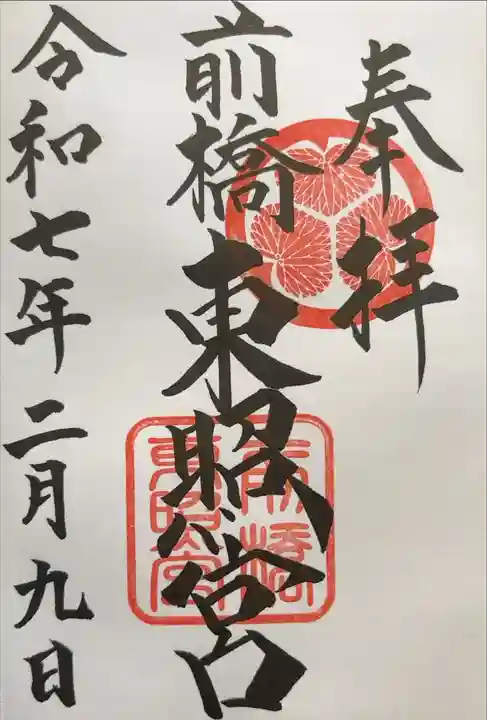 奉拝
前橋東照宮
令和七年二月九日
前橋
東照宮